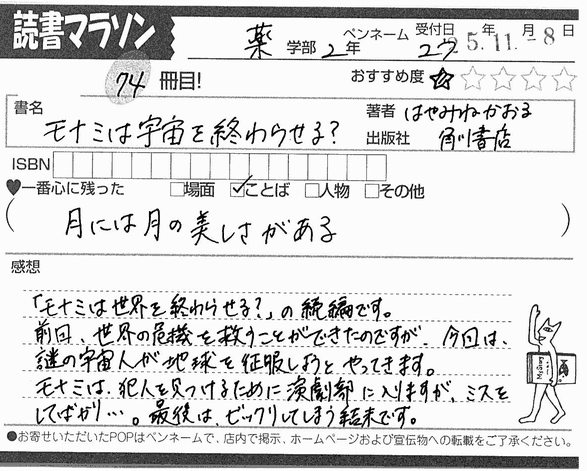 読書マラソン
薬 学部 2年 ペンネーム ユウ 受付日 5.11.-8 年 月 日
74 冊目! おすすめ度 ★☆☆☆☆
書名 モナミは宇宙を終わらせる? 著者 はやみねかおる
出版社 角川書店
ISBN
♥一番心に残った □場面 ☑ことば □人物 □その他
( 月には月の美しさがある )
感想
「モナミは世界を終わらせる?」の続編です。
前回、世界の危機を救うことができたのですが、今回は、
謎の宇宙人が地球を征服しようと やってきます。
モナミは、犯人を見つけるために演劇部に入りますが、ミスを
してばかり…。最後は、ビックリしてしまう結末です。
●お寄せいただいたPOPはペンネームで、店内で掲示、ホームページおよび宣伝物への転載をご了承ください。